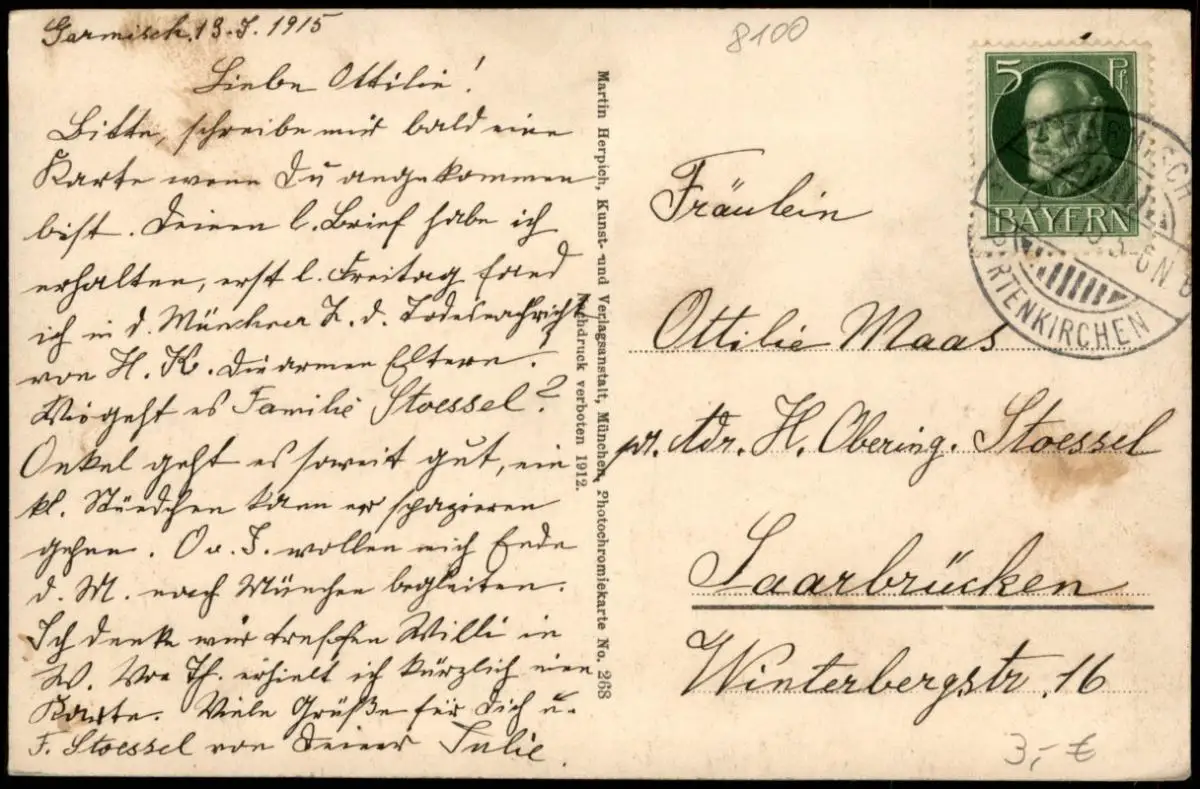 Garmisch, 13.7.1915
Liebe Ottilie!
Bitte, schreibe mir bald eine
Karte wenn Du angekommen
bist. Deinen l. Brief habe ich
erhalten, erst l. Freitag fand
ich in d. Münchner Z. d. Todesnachricht
von H. K. Die armen Eltern!
Wie geht es Familie Stoessel?
Onkel geht es soweit gut, ein
kl. Stündchen kann er spazieren
gehen. O. u. J. wollen mich Ende
d. M. nach München begleiten.
Ich denke wir treffen Willi in
W. Von Th. erhielt ich kürzlich eine
Karte. Viele Grüße für Dich u.
F. Stoessel von Deiner Julie.
Martin Herpich, Kunst- und Verlagsanstalt, München, Photochromiekarte No. 268
Nachdruck verboten 1912.
8100
5 Pf.
BAYERN
GARMISCH
PARTENKIRCHEN
Fräulein
Ottilie Maas
pr. Adr. H. Obering. Stoessel
Saarbrücken
Winterbergstr. 16
3,- €